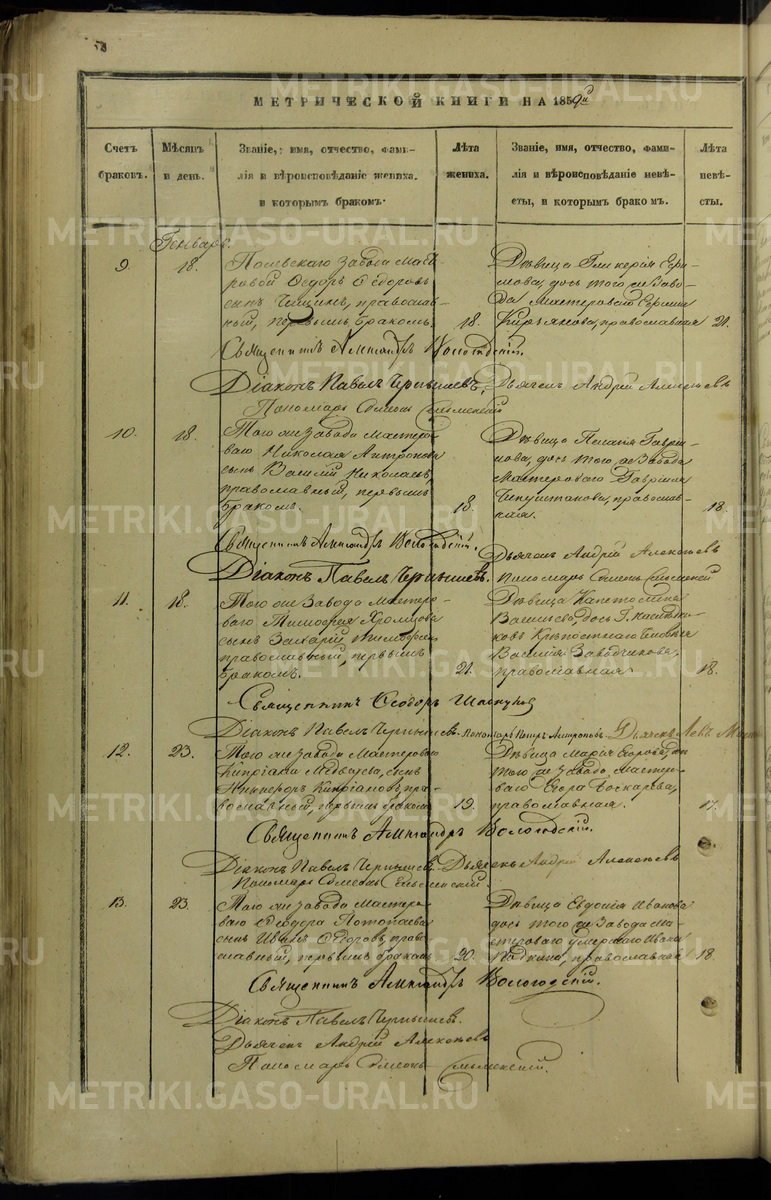 МЕТРИЧЕСКОЙ КНИГИ НА 1859й
Счетъ браковъ.
Мѣсяцъ и день.
Званіе, имя, отчество, фами-
лія и вѣроисповѣданіе жениха.
и которымъ бракомъ.
Лѣта жениха.
Званіе, имя, отчество, фами-
лія и вѣроисповѣданіе невѣ-
сты, и которымъ бракомъ.
Лѣта невѣ-
сты.
Генварь.
9.
18.
Завода Масте-
ровой Ѳедоръ Ѳедоровъ
сынъ православ-
ный, первымъ бракомъ.
18.
Дѣвица Гликерія
дочь того же Заво-
да Мастероваго
Кирьянова, православная
21.
Священникъ Александръ Вологодскій.
Діаконъ Павелъ Чернышевъ.
Дьячекъ Андрей Алексѣевъ
Пономарь Симеонъ
10.
18.
Того же Завода Мастеро-
ваго Николая
сынъ Василій Николаевъ,
православный, первымъ
бракомъ.
18.
Дѣвица Пелагія Гаври-
лова, дочь того же Завода
Мастероваго Гавріила
православ-
ная.
18.
Священникъ Александръ Вологодскій.
Дьячекъ Андрей Алексѣевъ
Діаконъ Павелъ Чернышевъ.
Пономарь Симеонъ
11.
18.
Того же Завода Мастеро-
ваго Тимофея
сынъ Захарій Тимофеевъ
православный, первымъ
бракомъ.
21.
Дѣвица Капетолина
Васильева дочь Г.
ковъ Крѣпостнаго
Василія Заводчикова,
православная
18.
Священникъ Ѳеодоръ
Діаконъ Павелъ Чернышевъ.
Пономарь Петръ
Дьячекъ Левъ
12.
23.
Того же Завода Мастероваго
Кипріана Медведева, сынъ
Никифоръ Кипріановъ, пра-
вославный, первымъ бракомъ
19.
Дѣвица Марія Егорова, дочь
того же Завода Мастеро-
ваго Егора
православная.
17.
Священникъ Александръ Вологодскій.
Діаконъ Павелъ Чернышевъ.
Дьячекъ Андрей Алексѣевъ
Пономарь Симеонъ
13.
23.
Того же Завода Мастеро-
ваго Ѳеодора Потопаева
сынъ Иванъ Ѳедоровъ, право-
славный, первымъ бракомъ
20.
Дѣвица Евдокія Иванова
дочь того же Завода Ма-
стероваго умершаго Ивана
православная
18.
Священникъ Александръ Вологодскій.
Діаконъ Павелъ Чернышевъ.
Дьячекъ Андрей Алексѣевъ
Пономарь Симеонъ
METRIKI.GASO-URAL.RU